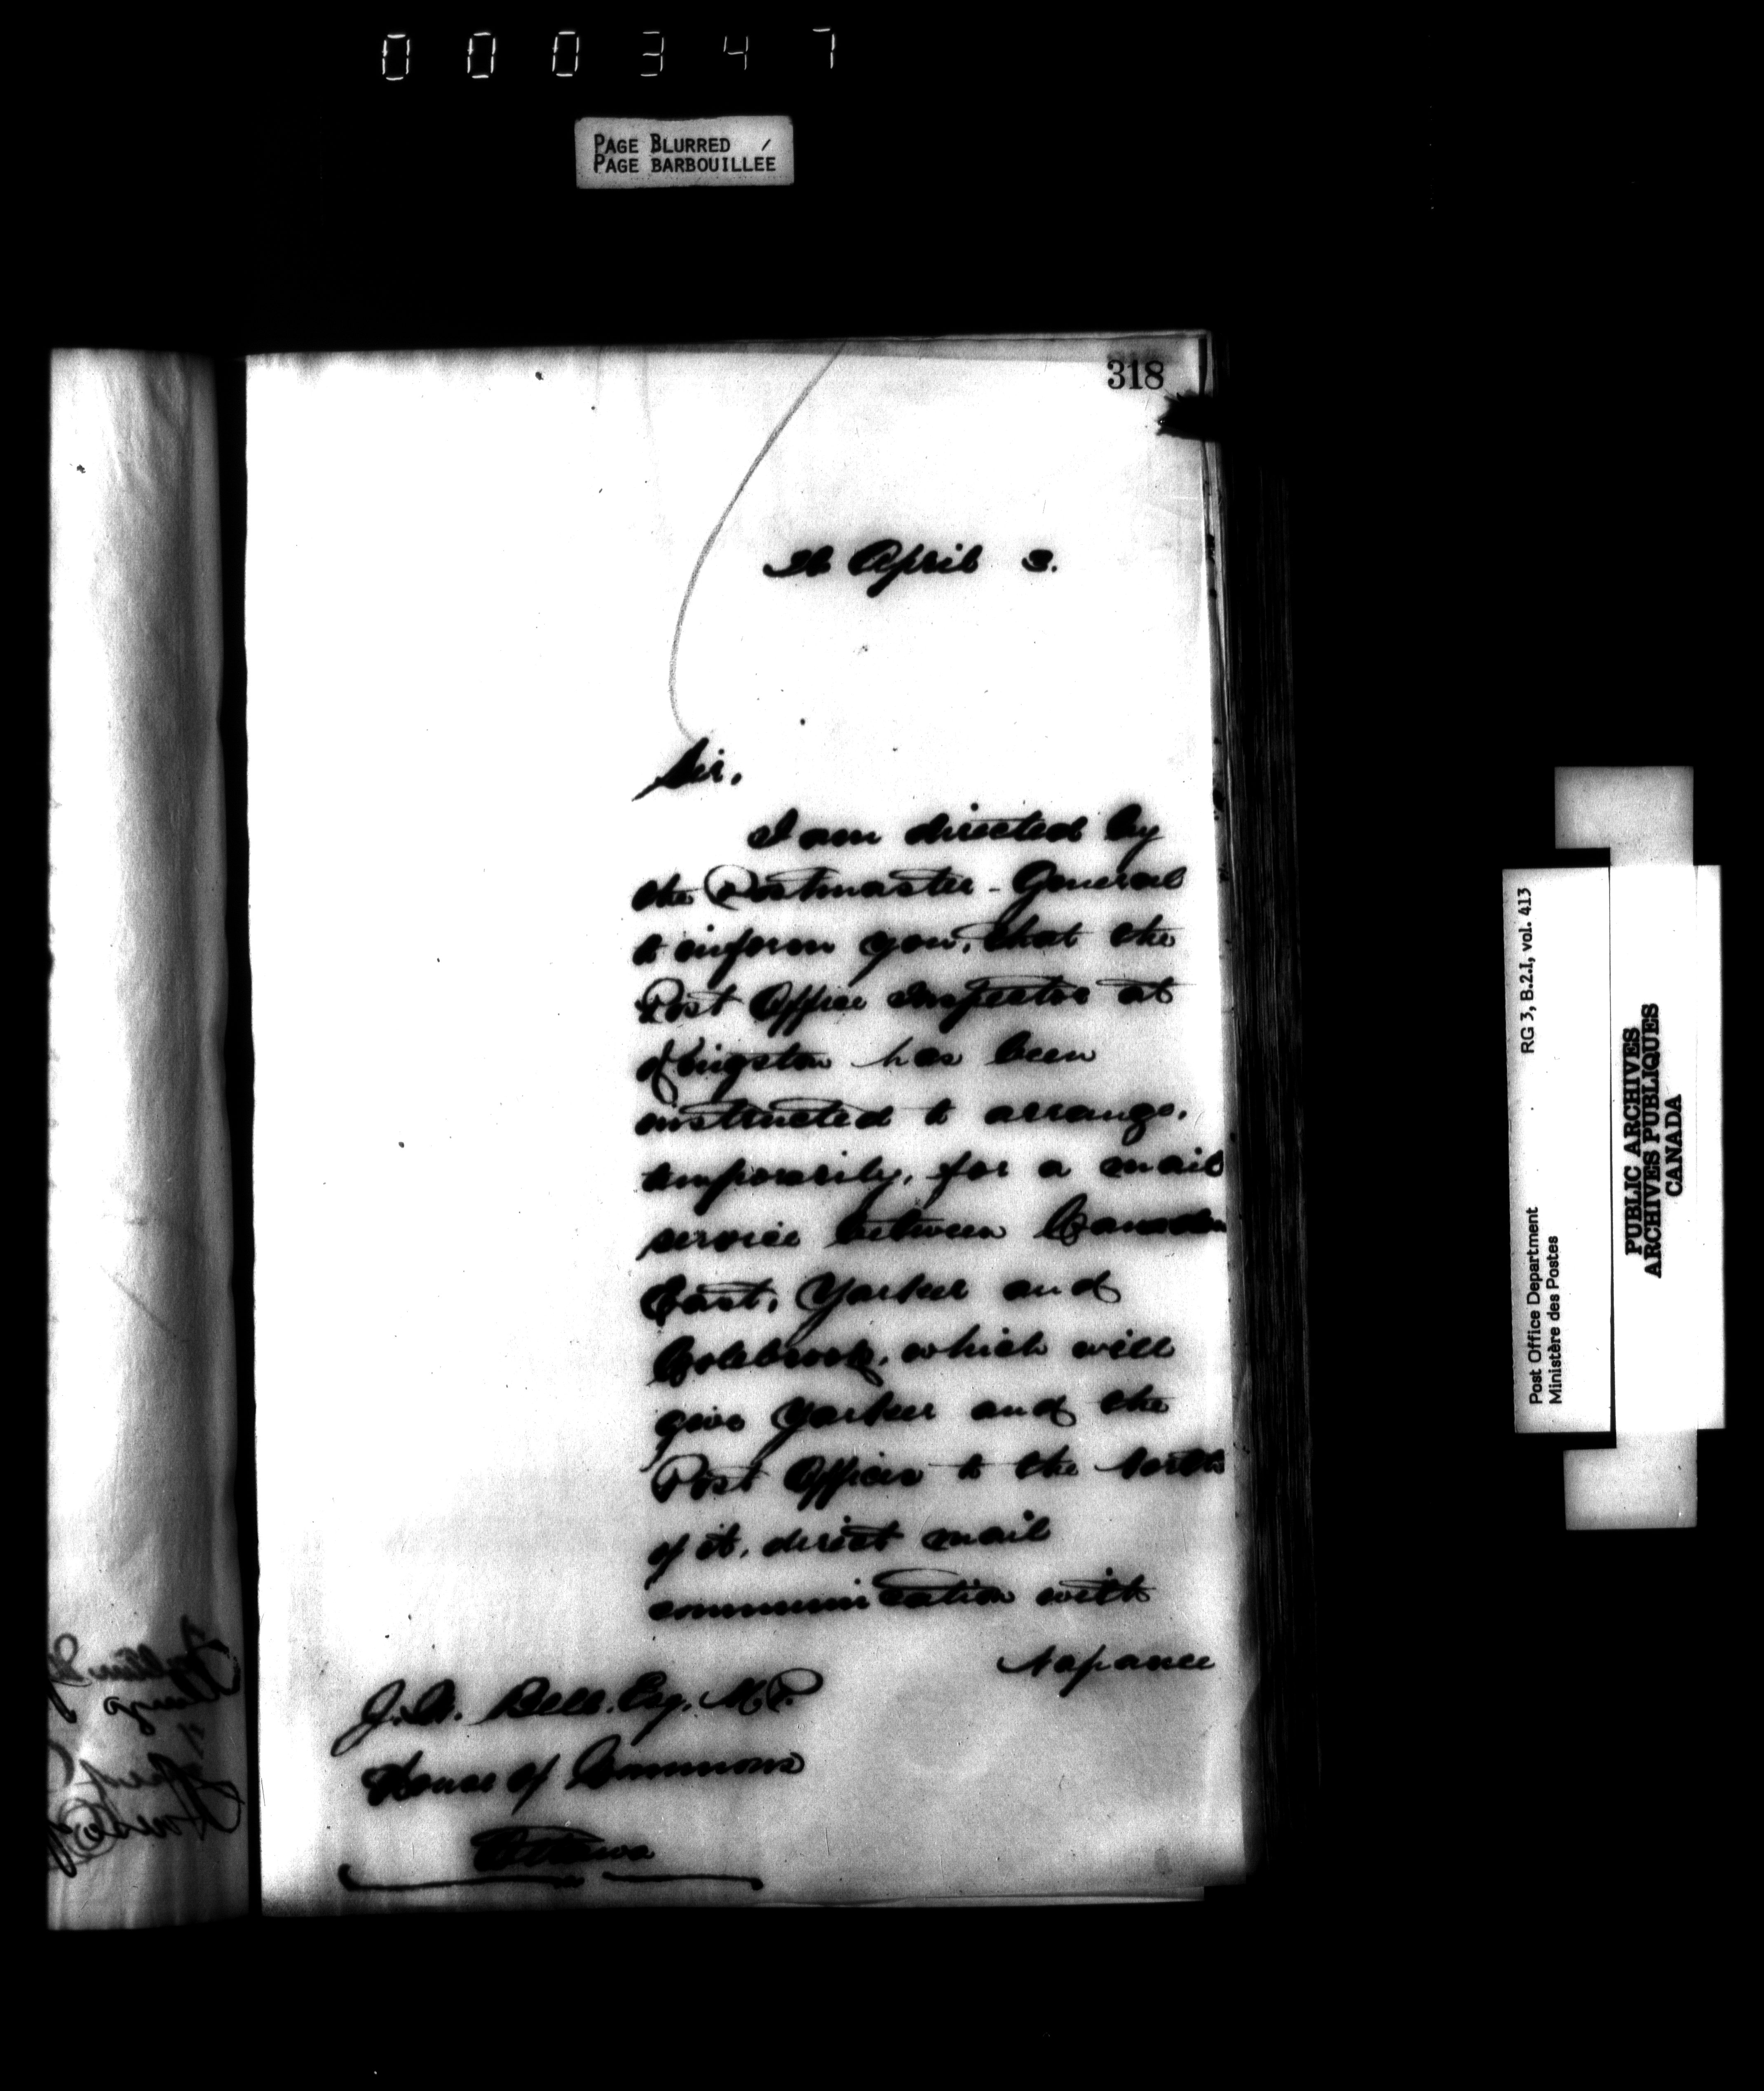 000347
PAGE BLURRED
PAGE BARBOUILLÉE
318
26 April 3.
Sir,
I am directed by
the Postmaster-General
to inform you, that the
Post Office Inspector at
Kingston has been
instructed to arrange,
temporarily, for a mail
service between Camden
East, Yarker and
Colebrook, which will
give Yarker and the
Post Offices to the North
of it, direct mail
communication with
Napanee
J.W. Bell, Esq. M.P.
House of Commons
Ottawa
Post Office Department RG 3, B.2.I, vol. 413
Ministère des Postes
PUBLIC ARCHIVES
ARCHIVES PUBLIQUES
CANADA